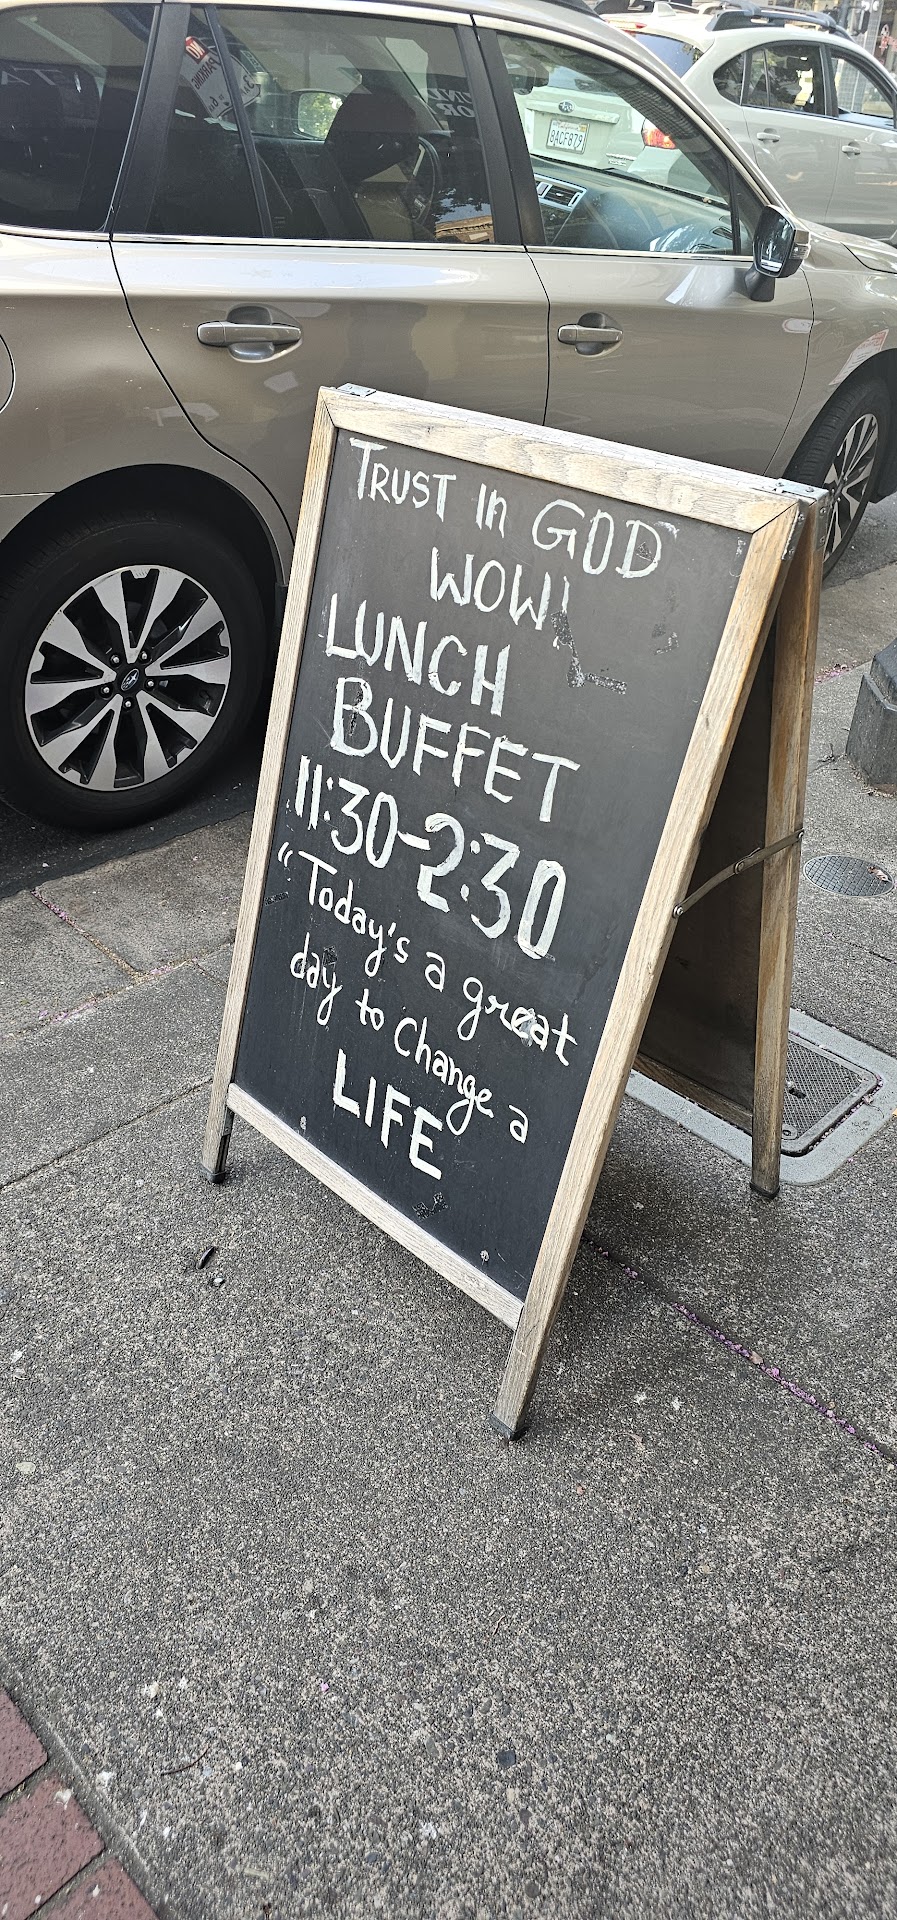 TRUST In GOD
WOW!
LUNCH
BUFFET
11:30-2:30
"Today's a great
day to Change a
LIFE
8ACF879
NO
PARKING